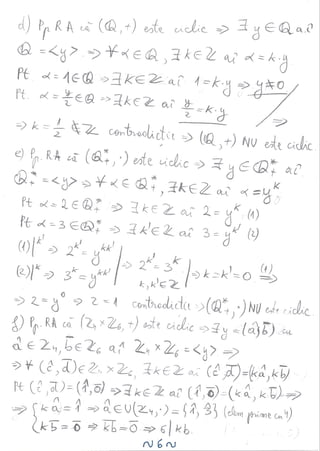 d) Pp. RA că (ℚ,+) este ciclic ⇒ ∃ y∈ℚ a.î.
ℚ = <y> ⇒ ∀ α∈ℚ, ∃k∈ℤ aî α = k·y
Pt. α = 1∈ℚ ⇒ ∃k∈ℤ aî 1 = k·y ⇒ y≠0
Pt. α = y/2 ∈ℚ ⇒ ∃k∈ℤ aî y/2 = k·y ⇒
⇒ k = 1/2 ∉ ℤ contradictie ⇒ (ℚ,+) NU este ciclic
e) Pp. RA că (ℚ*₊,·) este ciclic ⇒ ∃ y∈ℚ*₊ aî
ℚ*₊ = <y> ⇒ ∀ α∈ ℚ*₊, ∃k∈ℤ aî α = y^k
Pt α = 2∈ℚ*₊ ⇒ ∃ k∈ℤ aî 2 = y^k (1)
Pt α = 3∈ℚ*₊ ⇒ ∃ k'∈ℤ aî 3 = y^k' (2)
(1)|^k' ⇒ 2^k' = y^kk'
(2)|^k ⇒ 3^k = y^kk' | ⇒ 2^k' = 3^k k,k'∈ℤ | ⇒ k = k' = 0 (1)⇒
⇒ 2 = y⁰ ⇒ 2 = 1 contradictie ⇒ (ℚ*₊,·) NU este ciclic
f) Pp. RA că (ℤ₄×ℤ₆,+) este ciclic ⇒ ∃ y = (â,b̄) cu
â∈ℤ₄, b̄∈ℤ₆ aî ℤ₄×ℤ₆ = <y> ⇒
⇒ ∀ (ĉ,d̄)∈ℤ₄×ℤ₆, ∃k∈ℤ aî (ĉ,d̄) = (kâ,kb̄)
Pt (ĉ,d̄) = (1̂,0̄) ⇒ ∃k∈ℤ aî (1̂,0̄) = (kâ,kb̄) ⇒
⇒ { kâ = 1̂ ⇒ â∈U(ℤ₄,·) = {1̂,3̂} (elem prime cu 4)
kb̄ = 0̄ ⇒ kb̄ = 0̄ ⇒ 6|kb.
~6~